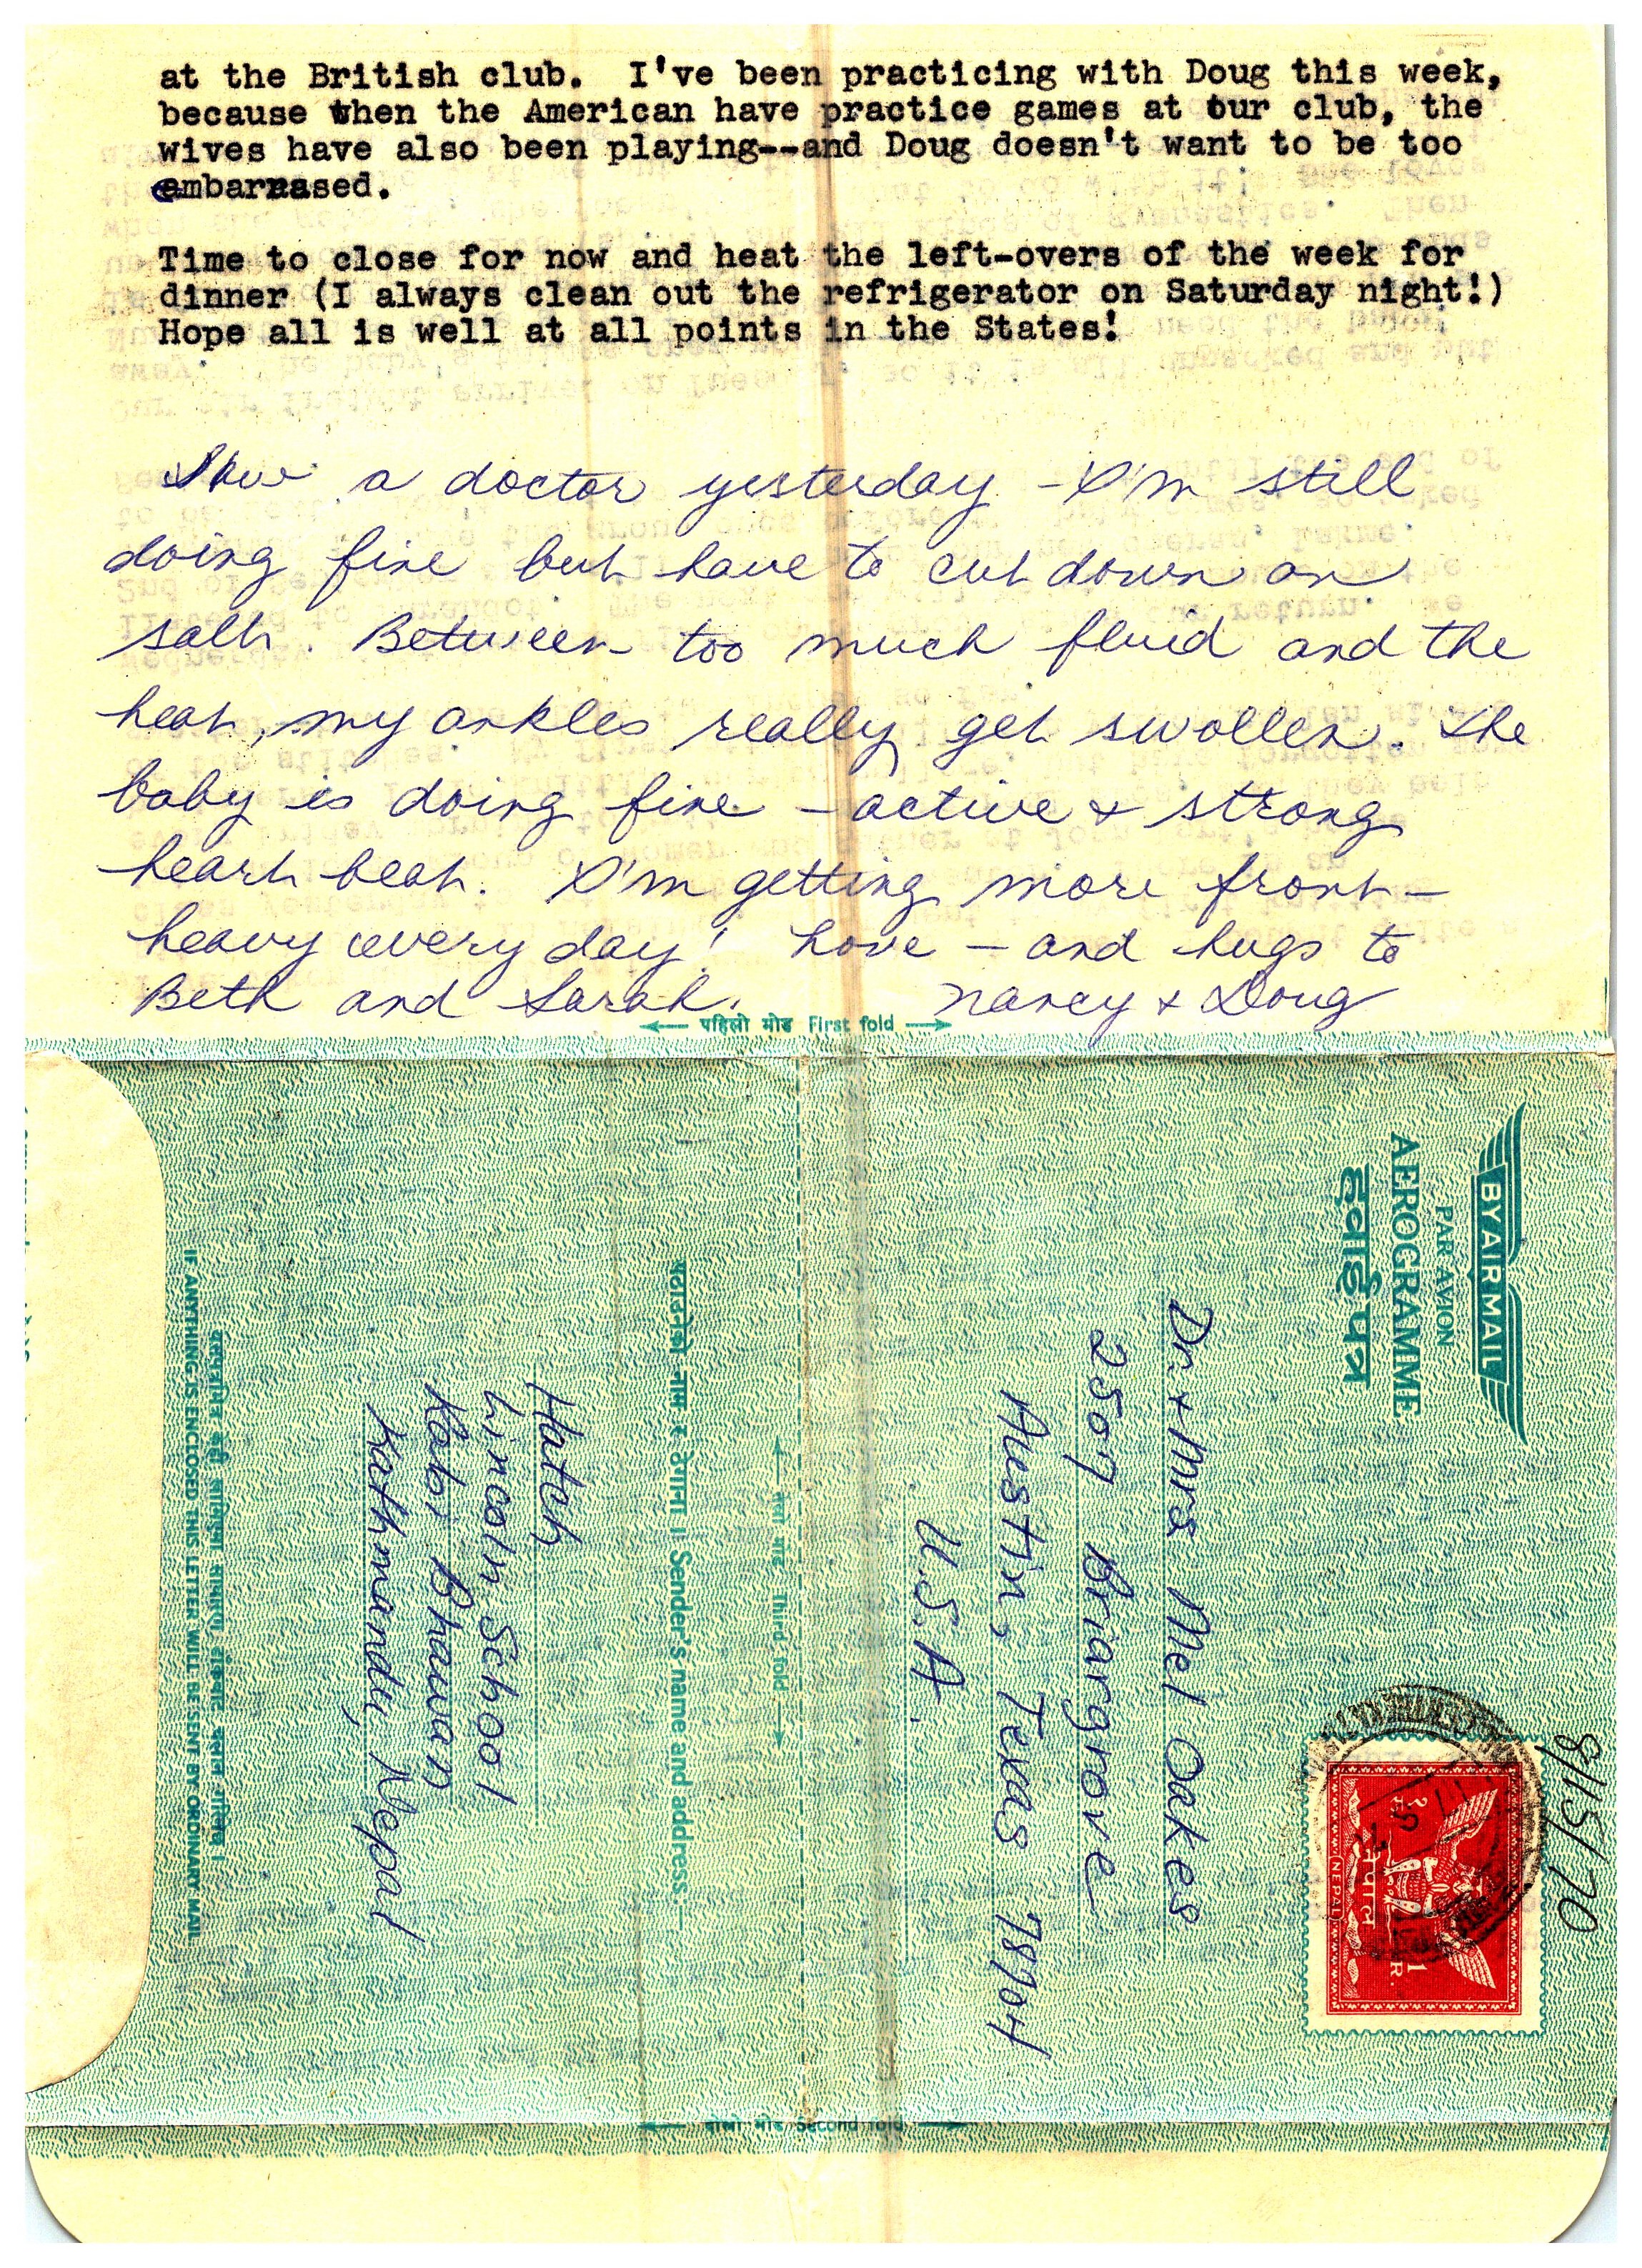 at the British club.  I've been practicing with Doug this week,
because when the American have practice games at our club, the
wives have also been playing--and Doug doesn't want to be too
embarrased.
Time to close for now and heat the left-overs of the week for
dinner (I always clean out the refrigerator on Saturday night!)
Hope all is well at all points in the States!
Saw a doctor yesterday - I'm still
doing fine but have to cut down on
salt. Between too much fluid and the
heat, my ankles really get swollen. The
baby is doing fine - active & strong
heart beat. I'm getting more front-
heavy every day! Love - and hugs to
Beth and Sarah. Nancy & Doug
पहिलो मोड First fold
BY AIR MAIL
PAR AVION
AEROGRAMME
हवाई पत्र
8/15/70
नेपाल
(NEPAL)
1
R.
Dr. & Mrs Mel Oakes
2507 Briargrove
Austin, Texas 78704
U.S.A.
Third fold
पठाउनेको नाम र ठेगाना ॥ Sender's name and address
Hatch
Lincoln School
Rabi Bhawan
Kathmandu, Nepal
IF ANYTHING IS ENCLOSED THIS LETTER WILL BE SENT BY ORDINARY MAIL
दोस्रो मोड Second fold